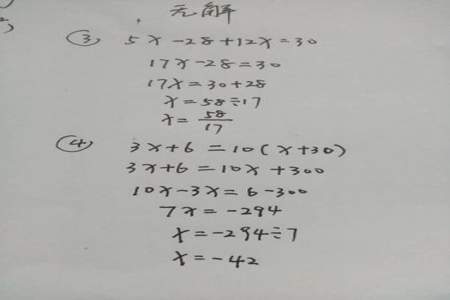 无解
③ 5x-28+12x=30
17x-28=30
17x=30+28
x=58÷17
x=58/17
④ 3x+6=10(x+30)
3x+6=10x+300
10x-3x=6-300
7x=-294
x=-294÷7
x=-42